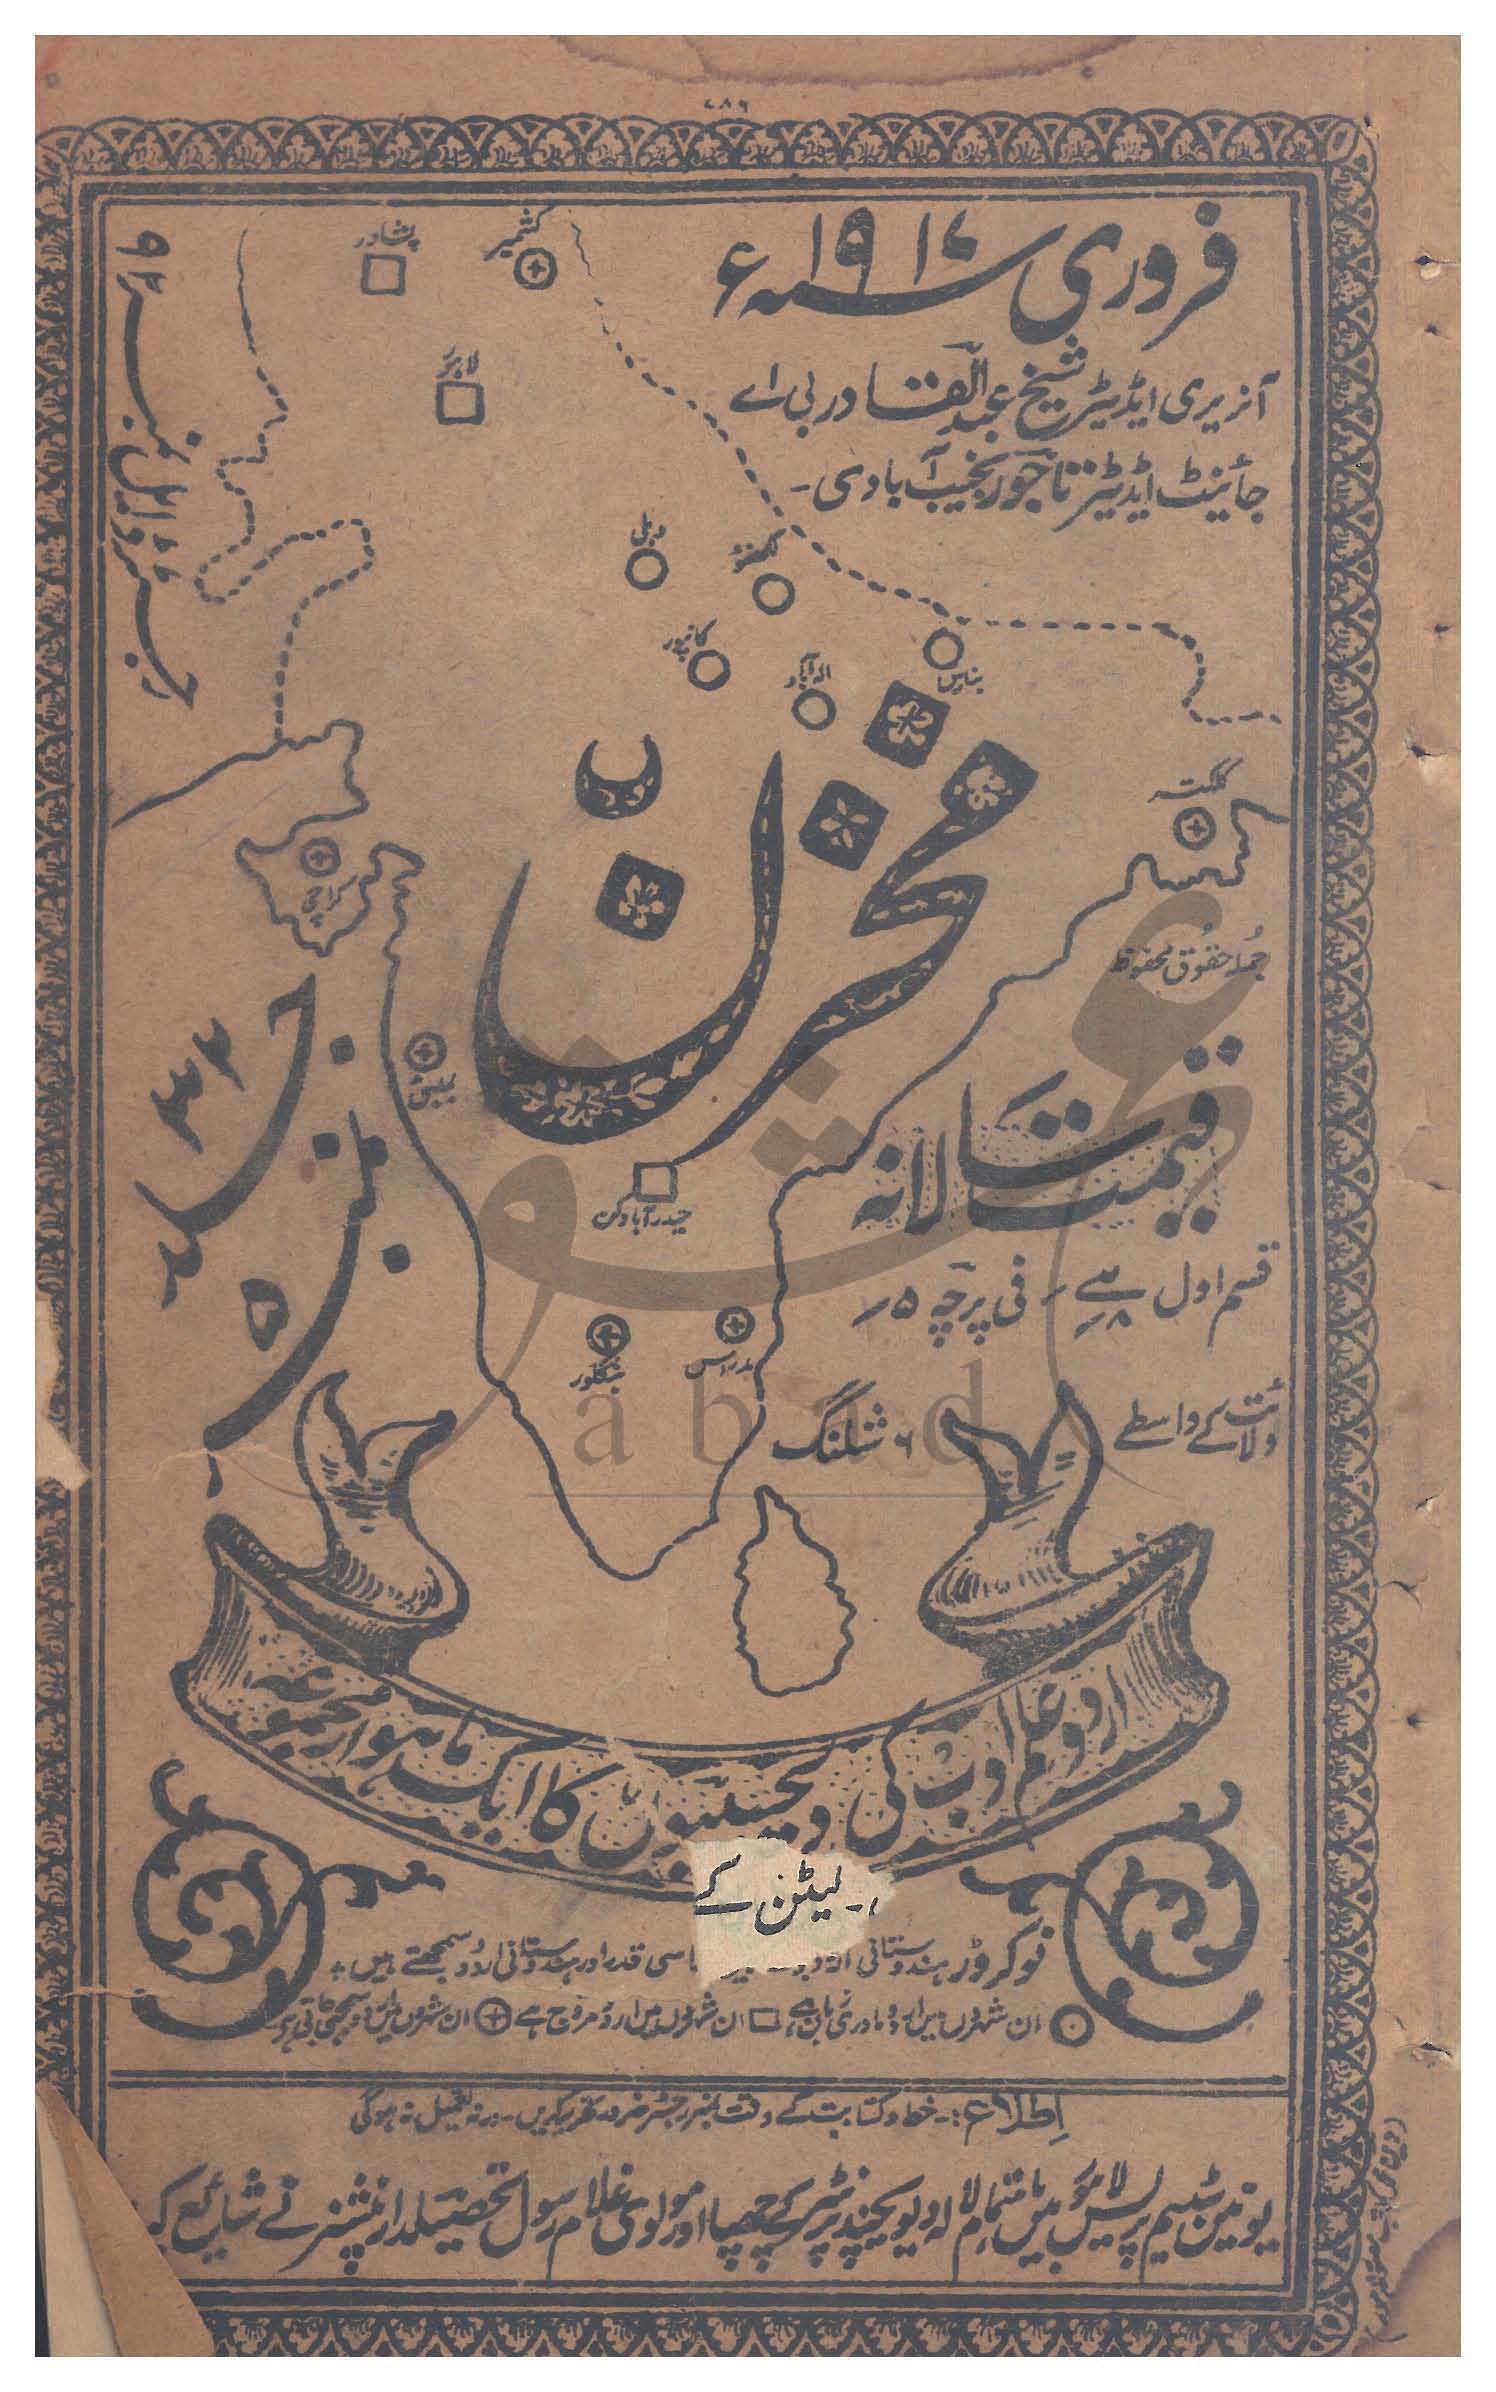 ۷۸۶
فروری ۱۹۱۷ء
آنریری ایڈیٹر شیخ عبدالقادر بی اے
جائینٹ ایڈیٹر تاجور نجیب آبادی۔
پشاور
کشمیر
لاہور
دہلی
لکھنؤ
کانپور
الہ آباد
بنارس
کلکتہ
کراچی
بمبئی
حیدرآباد دکن
بنگلور
مدراس
مخزن
جلد ۳۲
نمبر ۵
جملہ حقوق محفوظ
قیمت سالانہ
قسم اول فی پرچہ ۵؍
ولائت کے واسطے ۶ شلنگ
اردو علم و ادب کی دلچسپیوں کا ایک ماہوار مجموعہ
۔لیٹن کے
نو کروڑ ہندوستانی اسی قدر اور ہندوستانی اردو سمجھتے ہیں
ان شہروں میں اردو مادری زبان ہے ان شہروں میں اردو مروج ہے ان شہروں میں اردو سمجھی جاتی ہے
اطلاع:۔ خط و کتابت کے وقت نمبر رجسٹر ضرور تحریر کریں۔ ورنہ تعمیل نہ ہوگی
یونین سٹیم پریس لاہور میں باہتمام لالہ دیویچند پرنٹر کے چھپا اور مولوی غلام رسول تحصیلدار پنشنر نے شائع کیا
abad